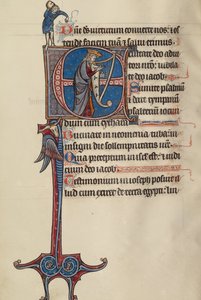 Dñe ds uirtutum conuerte nos: et os
tende faciem tuã & salui erimus.
Exultate deo adiu
tori nrõ: iubila
te deo iacob.
Sumite psalmũ
& date tympanũ
psalterium iocun
dum cum cythara.
Buccinate in neomenia tuba: in
insigni die sollempnitatis ure.
Quia preceptum in isrl est: & iudi
cium deo iacob.
Testimonium in ioseph posuit il
lud cum exiret de terra egypti: lin